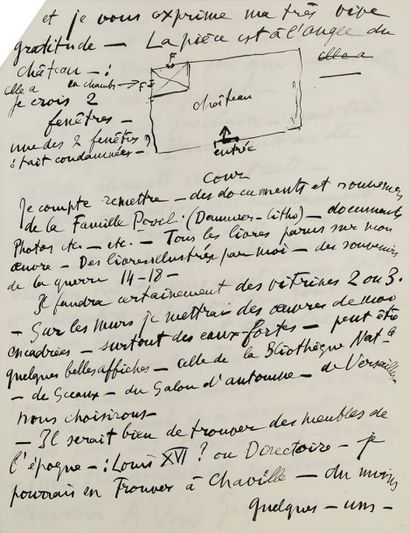 et je vous exprime ma très vive
gratitude — La pièce est à l'angle du
château — :
elle a
elle a
la chambre
F
F
je crois 2
fenêtres —
une des 2 fenêtres
était condamnée —
château
entrée
Cour
Je compte remettre — des documents et souvenirs
de la Famille (Daumier - litho) — documents
Photos etc — etc. — Tous les livres parus sur mon
œuvre — Des livres illustrés par moi — des souvenirs
de la guerre 14 - 18 —
Il faudra certainement des vitrines 2 ou 3.
— Sur les murs je mettrai des œuvres de moi
encadrées — surtout des eaux-fortes — peut être
quelques belles affiches — celle de la Bliothèque Natle
— de Sceaux — du Salon d'automne — de Versailles
nous choisirons —
— Il serait bien de trouver des meubles de
l'époque — : Louis XVI ? ou Directoire — je
pourrais en Trouver à Chaville — du moins
quelques - uns —